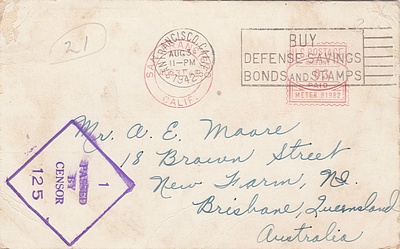 21
SAN FRANCISCO, CALIF.
AUG 3
11-PM
1942
SAN FRANCISCO
CALIF.
BUY
DEFENSE SAVINGS
BONDS AND STAMPS
U.S. POSTAGE
PAID
METER
Mr. A. E. Moore
18 Brown Street
New Farm, N1.
Brisbane, Queensland
Australia
1
PASSED
BY
CENSOR
125